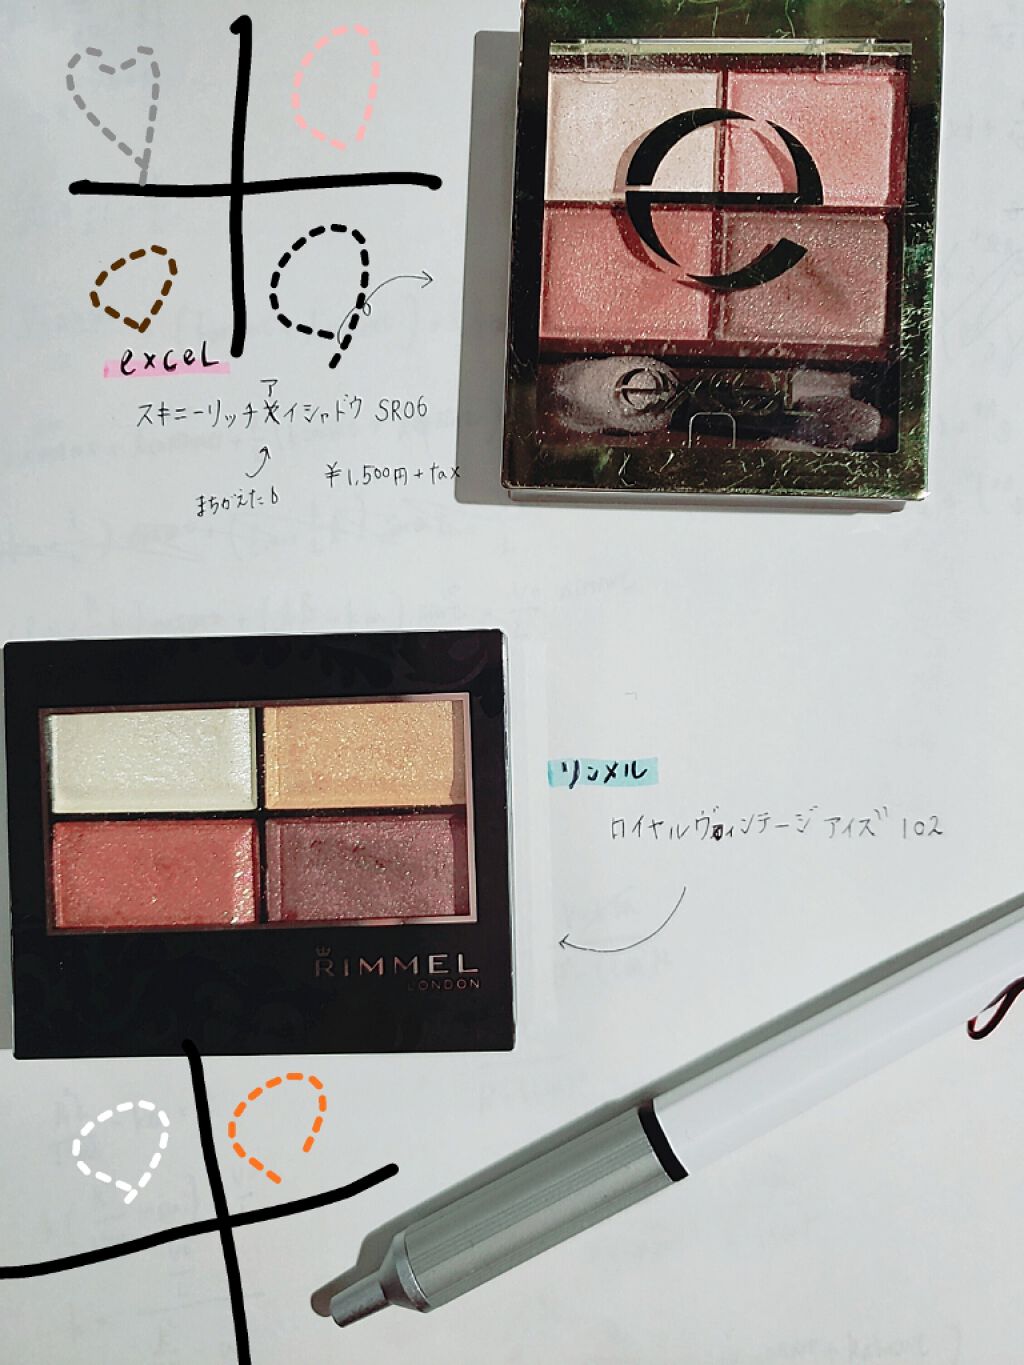 e
excel
excel
スキニーリッチアイシャドウ SR06
まちがえた6
¥1,500円+tax
リンメル
ロイヤルヴィンテージアイズ 102
RIMMEL
LONDON